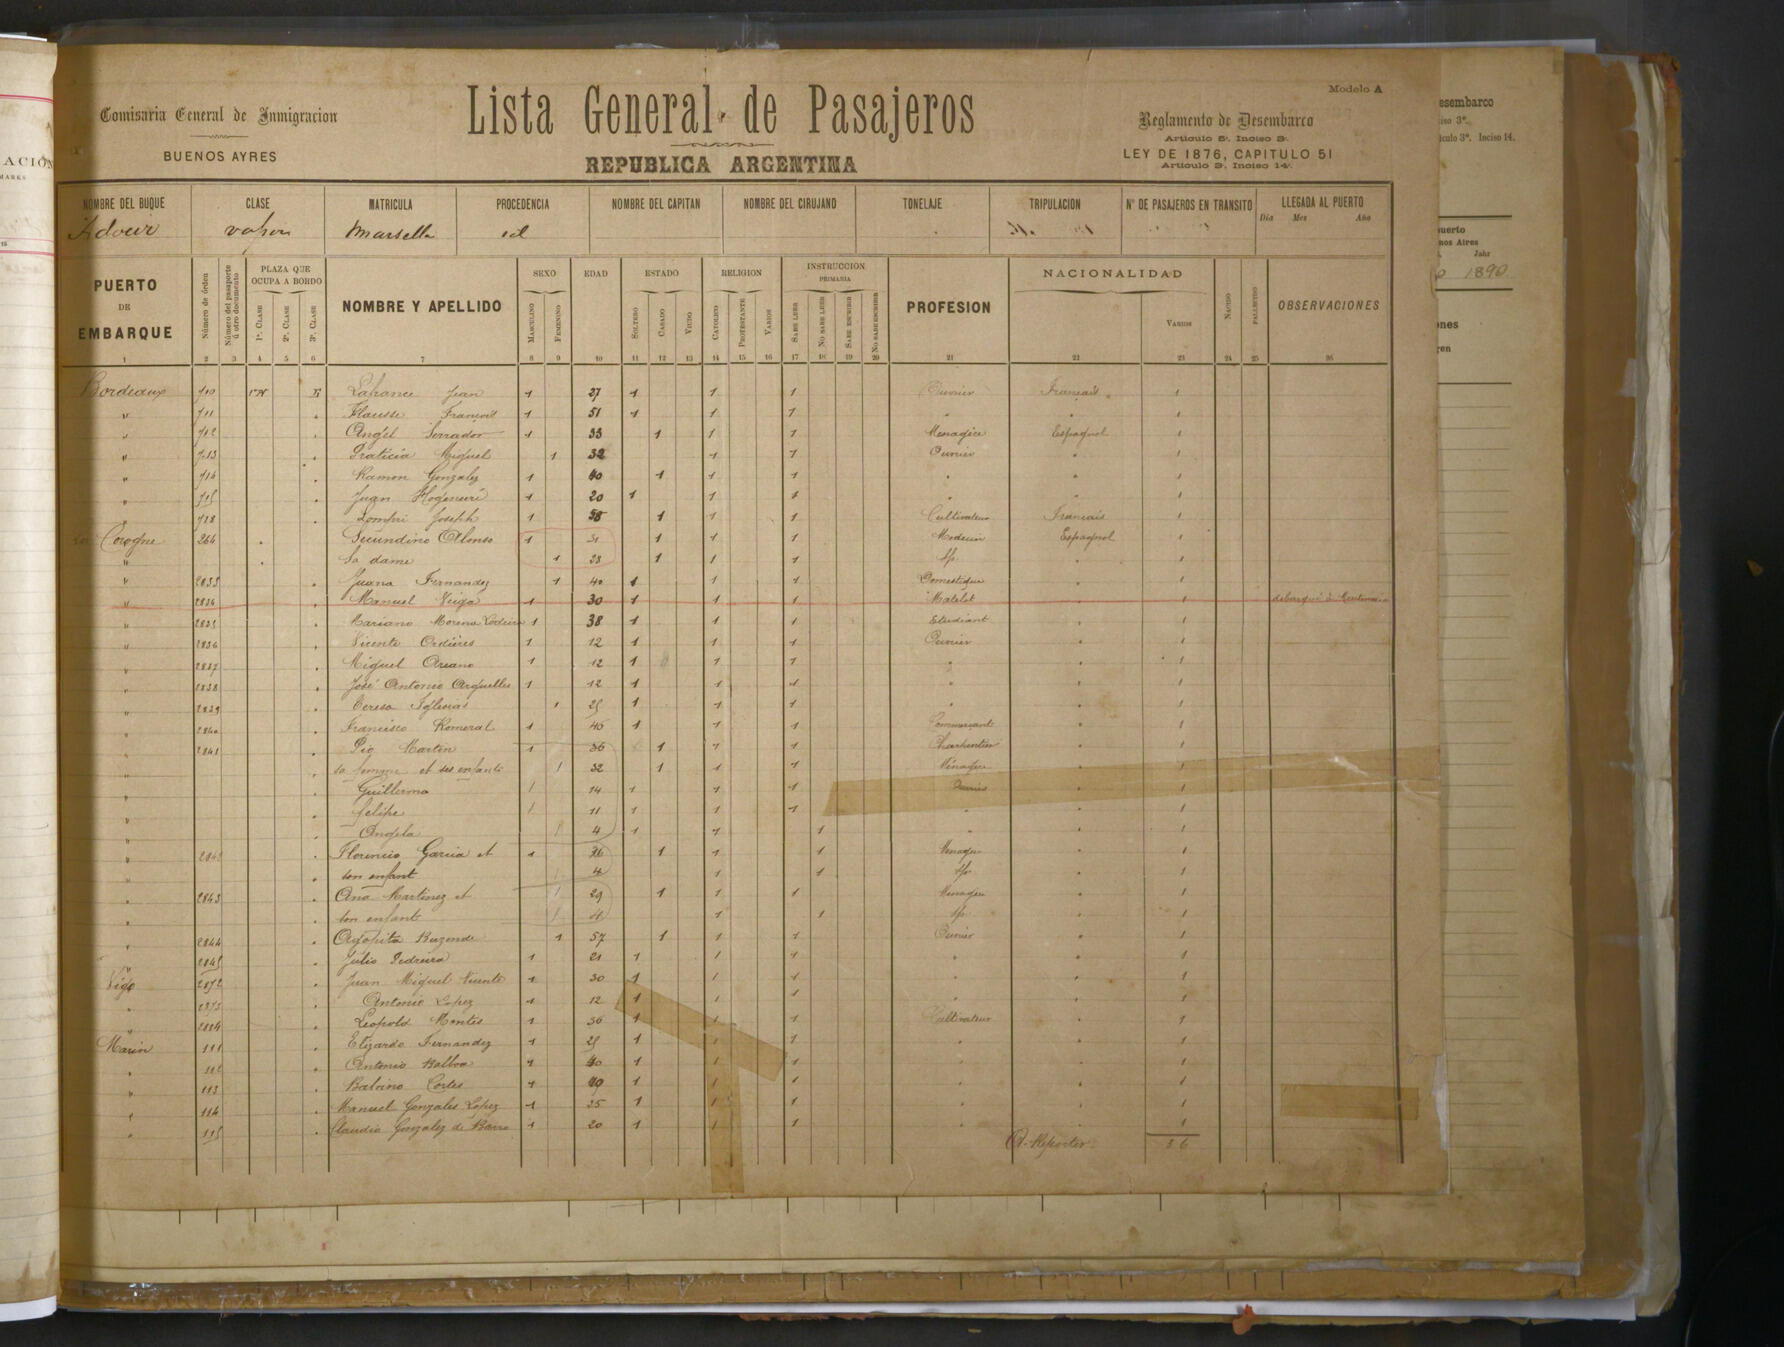 Comisaria General de Inmigracion
BUENOS AYRES
Lista General de Pasajeros
REPUBLICA ARGENTINA
Modelo A
Reglamento de Desembarco
Artículo 5º. Inciso 3º.
LEY DE 1876, CAPITULO 51
Artículo 3. Inciso 14.
NOMBRE DEL BUQUE CLASE MATRICULA PROCEDENCIA NOMBRE DEL CAPITAN NOMBRE DEL CIRUJANO TONELAJE TRIPULACION Nº DE PASAJEROS EN TRANSITO LLEGADA AL PUERTO
Dia Mes Año
Adour vapor Marsella id
PUERTO DE EMBARQUE Número de órden Número del pasaporte ú otro documento PLAZA QUE OCUPA A BORDO 1ª. CLASE 2ª. CLASE 3ª. CLASE NOMBRE Y APELLIDO SEXO MASCULINO FEMENINO EDAD ESTADO SOLTERO CASADO VIUDO RELIGION CATOLICO PROTESTANTE VARIOS INSTRUCCION PRIMARIA SABE LEER NO SABE LEER SABE ESCRIBIR NO SABE ESCRIBIR PROFESION NACIONALIDAD VARIOS NACIDO FALLECIDO OBSERVACIONES
1 2 3 4 5 6 7 8 9 10 11 12 13 14 15 16 17 18 19 20 21 22 23 24 25 26
Bordeaux 710 Lafrance Jean 1 27 1 1 1 Ouvrier Français 1
" 711 François 1 51 1 1 1 " " 1
" 712 Angel Serrador 1 33 1 1 1 Menagère Espagnol 1
" 713 Miguel 1 32 1 1 Ouvrier " 1
" 714 Ramon Gonzalez 1 40 1 1 1 " " 1
" 715 Juan 1 20 1 1 1 " " 1
718 Joseph 1 58 1 1 1 Cultivateur Français 1
La Corogne 264 Secundino Alonso 1 31 1 1 1 Medecin Espagnol 1
" Sa dame 1 28 1 1 1 Sp. " 1
" 2833 Juana Fernandez 1 40 1 1 1 Domestique " 1
" 2834 Manuel Veiga 1 30 1 1 1 Matelot " 1 debarqué à
" 2835 Mariano Moreno 1 38 1 1 1 Etudiant " 1
" 2836 Vicente 1 12 1 1 1 Ouvrier " 1
" 2837 Miguel 1 12 1 1 1 " " 1
" 2838 José Antonio Arguelles 1 12 1 1 1 " " 1
" 2839 Teresa Iglesias 1 25 1 1 1 " " 1
" 2840 Francisco Romeral 1 46 1 1 1 Commerçant " 1
" 2841 Pio Martin 1 36 1 1 1 Charpentier " 1
" sa femme et ses enfants 1 32 1 1 1 Ménagère " 1
" Guillermo 1 14 1 1 1 Ouvrier " 1
" Felipe 1 11 1 1 1 " " 1
" Angela 1 4 1 1 1 " " 1
" Florencio Garcia et 1 36 1 1 1 Menagère " 1
" son enfant 1 4 1 1 Sp. " 1
" 2843 Ana Martinez et 1 29 1 1 1 Menagère " 1
" son enfant 1 4 1 1 Sp. " 1
" 2844 1 57 1 1 1 Ouvrier " 1
" 2845 Julio Pedreira 1 21 1 1 1 " " 1
Vigo 2872 Juan Miguel Vicente 1 30 1 1 1 " " 1
" 2873 Antonio Lopez 1 12 1 1 1 " " 1
" 2884 Leopold Montes 1 36 1 1 1 Cultivateur " 1
Marin 111 Elizardo Fernandez 1 25 1 1 1 " " 1
" 112 Antonio Balboa 1 40 1 1 1 " " 1
" 113 Cortes 1 1 1 1 " " 1
" 114 Manuel Gonzales Lopez 1 25 1 1 1 " " 1
" 115 Claudio Gonzalez de 1 20 1 1 1 " " 1
A Reporter 36
esembarco
iso 3º.
ículo 3º. Inciso 14.
uerto
nos Aires
Jahr
1890
ones
ACIÓN
MARKS